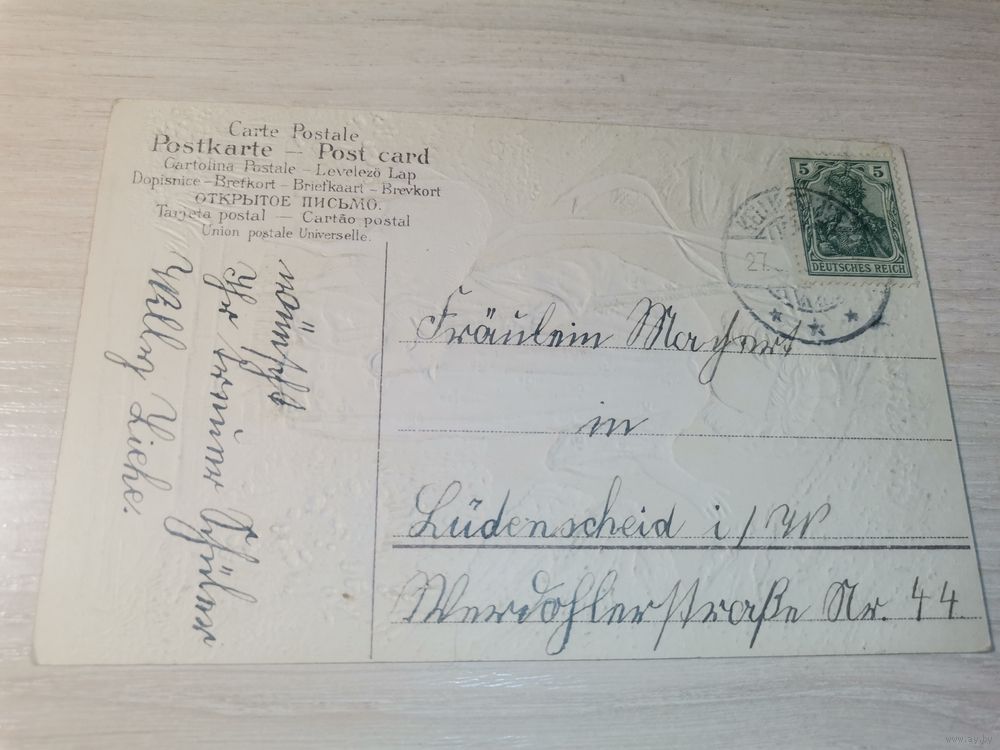 Carte Postale
Postkarte — Post card
Cartolina Postale – Levelező Lap
Dopisnice – Brefkort – Briefkaart – Brevkort
ОТКРЫТОЕ ПИСЬМО.
Tarjeta postal — Cartão postal
Union postale Universelle.
wünscht
Ihr treuer Schüler
Willy Ziehe.
5 5
DEUTSCHES REICH
27.
Fräulein Mayert
in
Lüdenscheid i/W
Werdohlerstraße Nr. 44.
www.ay.by